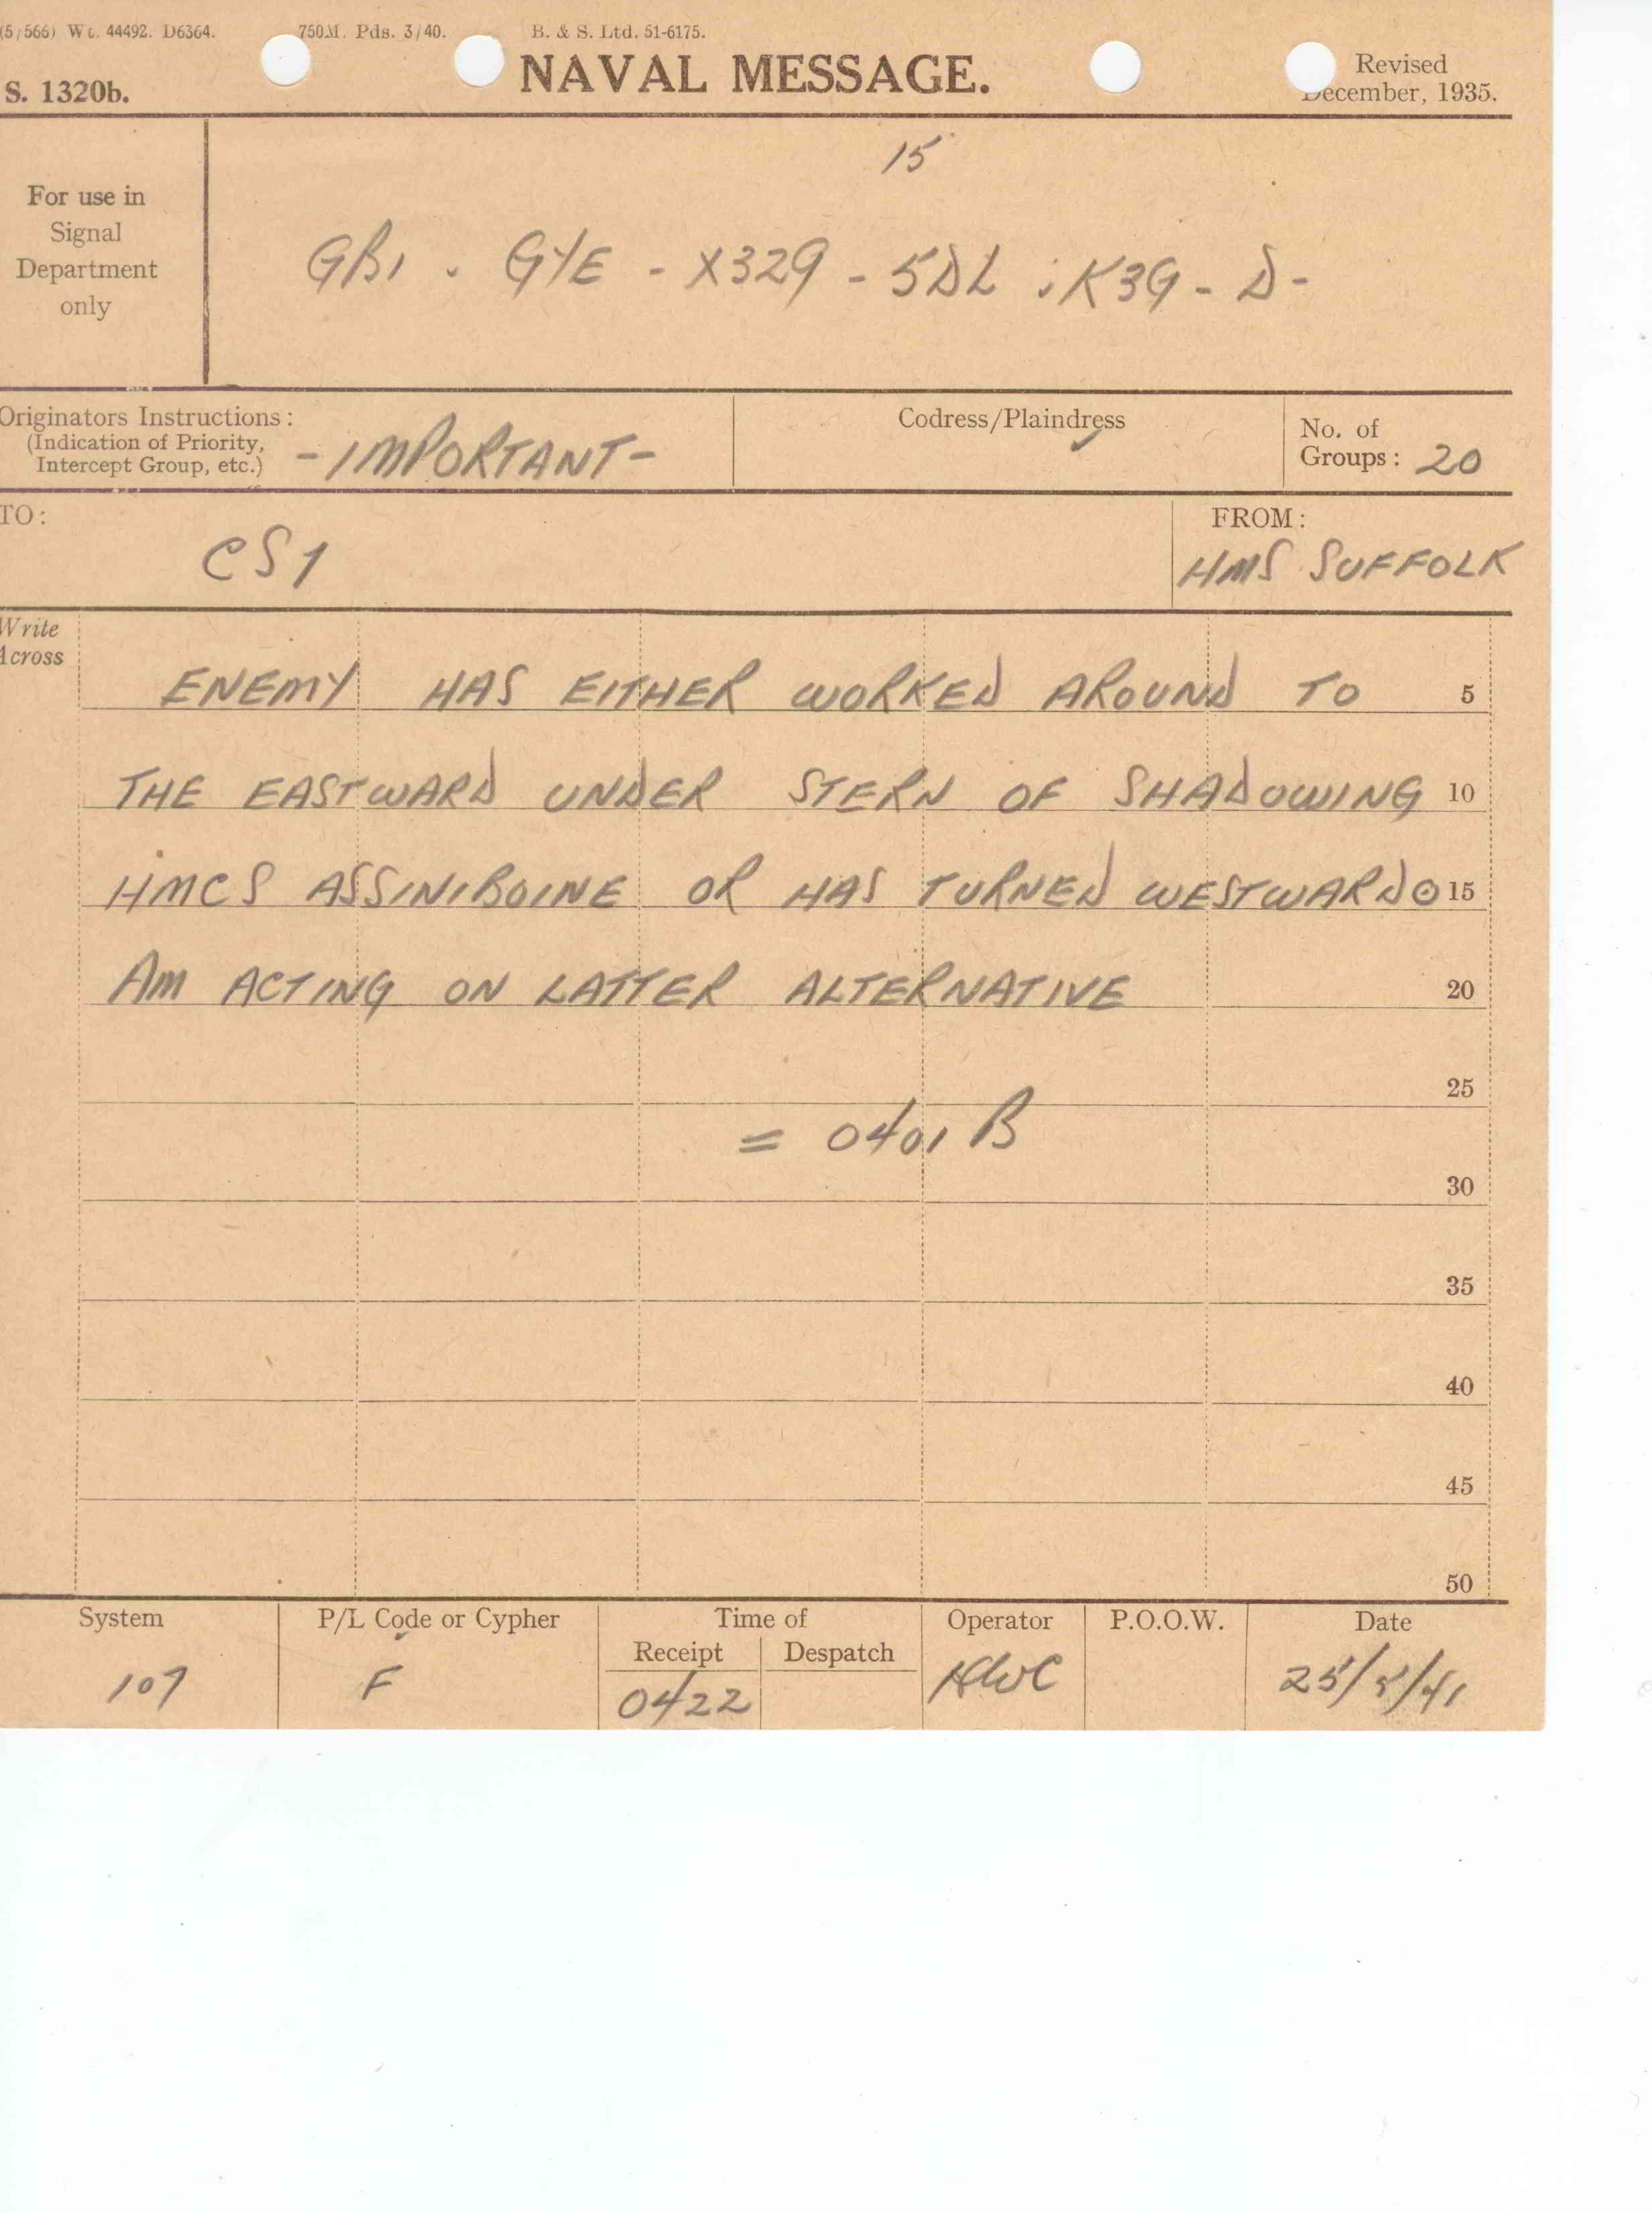 (5/566) Wt. 44492. D6364. 750M. Pds. 3/40. B. & S. Ltd. 51-6175.
S. 1320b.
NAVAL MESSAGE.
Revised
December, 1935.
For use in
Signal
Department
only
15
GR1 . GYE - X329 - 5DL : K3G - D -
Originators Instructions:
(Indication of Priority,
Intercept Group, etc.)
- IMPORTANT -
Codress/Plaindress
No. of
Groups: 20
TO:
CS1
FROM:
HMS SUFFOLK
Write
Across
ENEMY HAS EITHER WORKED AROUND TO 5
THE EASTWARD UNDER STERN OF SHADOWING 10
HMCS ASSINIBOINE OR HAS TURNED WESTWARD ⊙ 15
AM ACTING ON LATTER ALTERNATIVE 20
25
= 0401 B
30
35
40
45
50
System P/L Code or Cypher Time of Operator P.O.O.W. Date
Receipt Despatch
107 F 0422 25/5/41